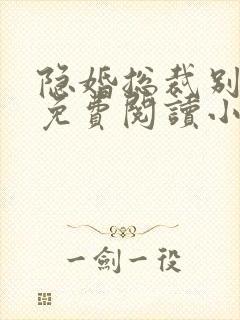 隐婚总裁别
免費閱讀小
一劍一役